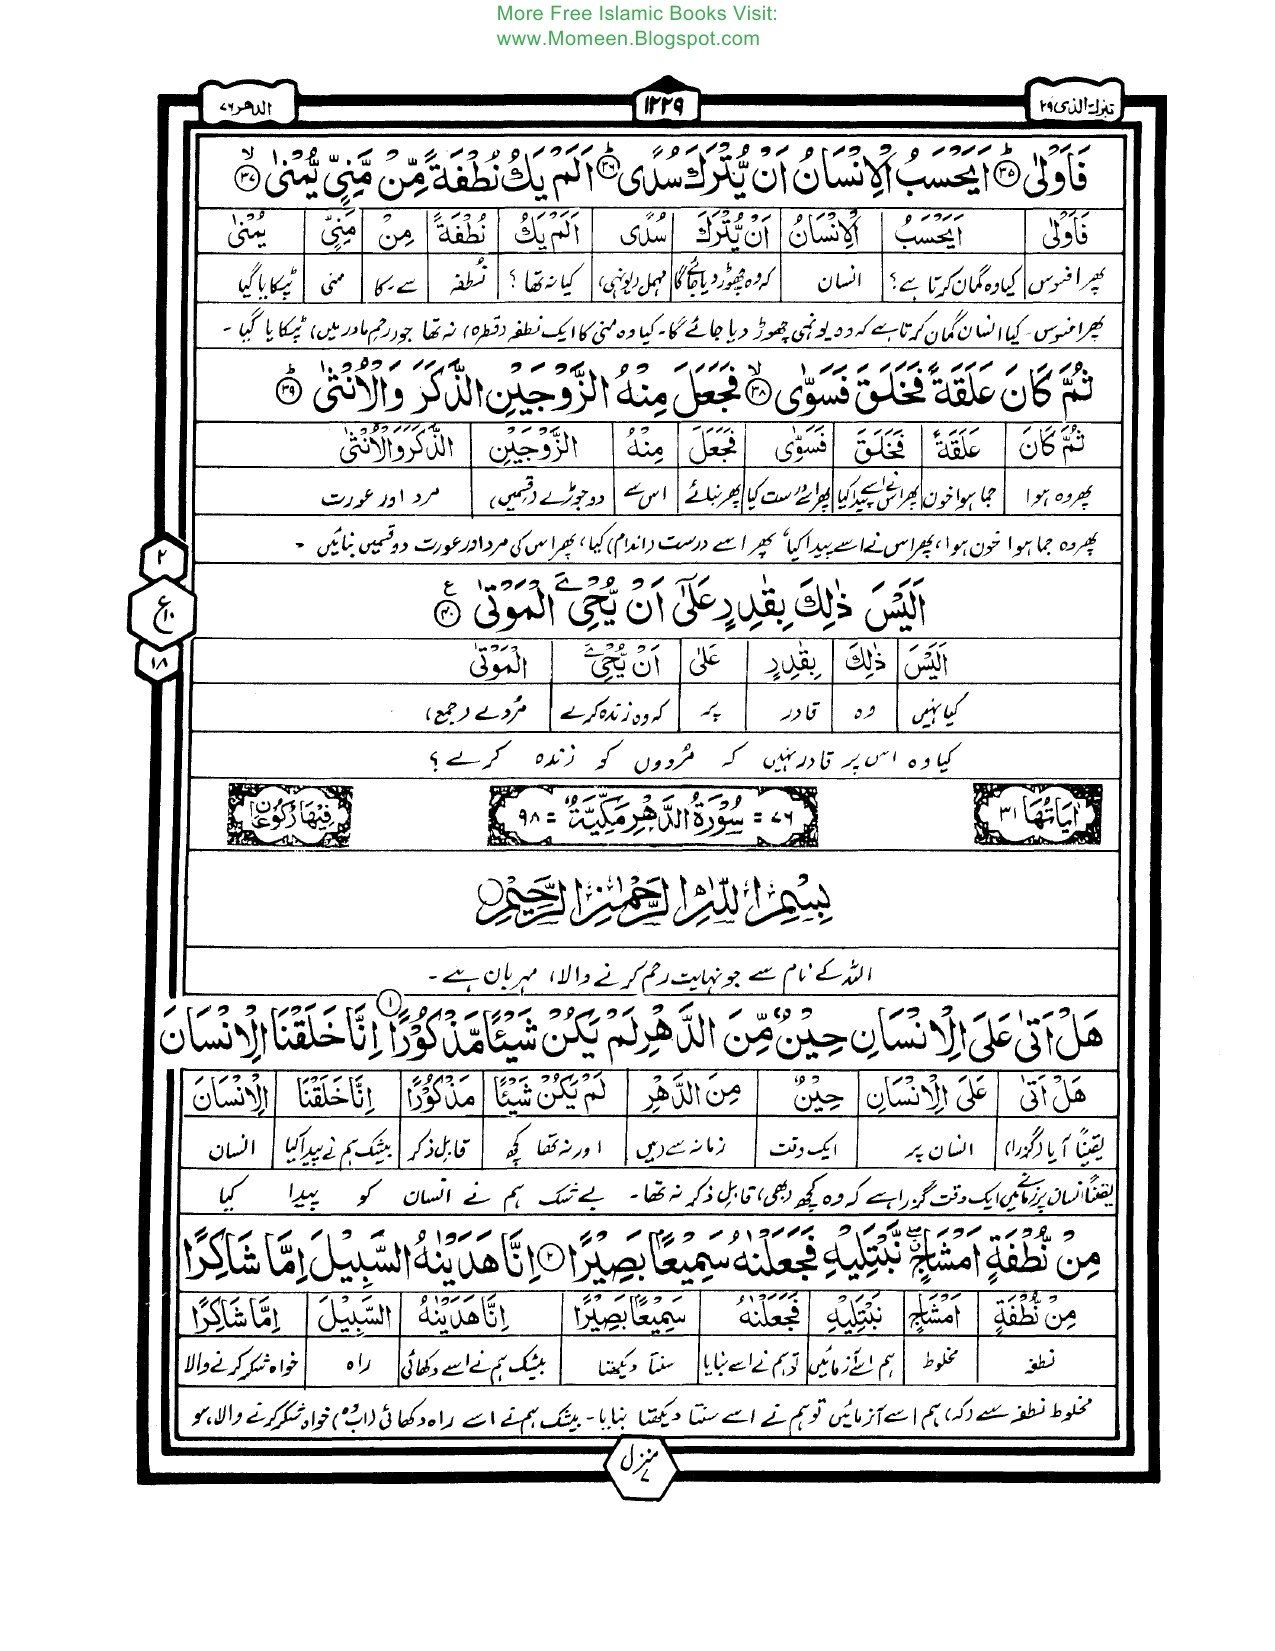 More Free Islamic Books Visit:
www.Momeen.Blogspot.com
تبرک الذی ۲۹ ۱۲۲۹ الدهر ۷۶
فَاَوْلٰى ﴿۳۵﴾ اَیَحْسَبُ الْاِنْسَانُ اَنْ یُّتْرَكَ سُدًى ﴿۳۶﴾ اَلَمْ یَكُ نُطْفَةً مِّنْ مَّنِیٍّ یُّمْنٰى ﴿۳۷﴾
فَاَوْلٰى اَیَحْسَبُ الْاِنْسَانُ اَنْ یُّتْرَكَ سُدًى اَلَمْ یَكُ نُطْفَةً مِنْ مَنِیٍّ یُمْنٰى
پھر افسوس کیا وہ گمان کرتا ہے؟ انسان کہ وہ چھوڑ دیا جائے گا مہمل (یونہی) کیا نہ تھا ؟ نُطفہ سے۔کا منی ٹپکایا گیا
پھر افسوس ۔ کیا انسان گمان کرتا ہے کہ وہ یونہی چھوڑ دیا جائے گا۔ کیا وہ منی کا ایک نطفہ (قطرہ) نہ تھا جو (رحمِ مادر میں) ٹپکایا گیا ۔
ثُمَّ كَانَ عَلَقَةً فَخَلَقَ فَسَوّٰى ﴿۳۸﴾ فَجَعَلَ مِنْهُ الزَّوْجَیْنِ الذَّكَرَ وَالْاُنْثٰى ﴿۳۹﴾
ثُمَّ كَانَ عَلَقَةً فَخَلَقَ فَسَوّٰى فَجَعَلَ مِنْهُ الزَّوْجَیْنِ الذَّكَرَ وَالْاُنْثٰى
پھر وہ ہوا جما ہوا خون پھر اس نے اسے پیدا کیا پھر اسے درست کیا پھر بنائے اس سے دو جوڑے (قسمیں) مرد اور عورت
پھر وہ جما ہوا خون ہوا، پھر اس نے اسے پیدا کیا، پھر اسے درست (اندام) کیا، پھر اس کی مرد اور عورت دو قسمیں بنائیں ۔
اَلَیْسَ ذٰلِكَ بِقٰدِرٍ عَلٰۤى اَنْ یُّحْیِۦَ الْمَوْتٰى ﴿۴۰﴾
۲
ع ۱۰
۱۸
اَلَیْسَ ذٰلِكَ بِقٰدِرٍ عَلٰى اَنْ یُّحْیِۦَ الْمَوْتٰى
کیا نہیں وہ قادر پر کہ وہ زندہ کرے مُردے (جمع)
کیا وہ اس پر قادر نہیں کہ مُردوں کو زندہ کرے ؟
اٰیَاتُهَا ۳۱ ۷۶ = سُوْرَةُ الدَّهْرِ مَكِّیَّةٌ = ۹۸ فِیْهَا رُكُوْعَانِ
بِسْمِ اللّٰهِ الرَّحْمٰنِ الرَّحِیْمِ
اللہ کے نام سے جو نہایت رحم کرنے والا، مہربان ہے۔
هَلْ اَتٰى عَلَى الْاِنْسَانِ حِیْنٌ مِّنَ الدَّهْرِ لَمْ یَكُنْ شَیْئًا مَّذْكُوْرًا ﴿۱﴾ اِنَّا خَلَقْنَا الْاِنْسَانَ
هَلْ اَتٰى عَلَى الْاِنْسَانِ حِیْنٌ مِنَ الدَّهْرِ لَمْ یَكُنْ شَیْئًا مَذْكُوْرًا اِنَّا خَلَقْنَا الْاِنْسَانَ
یقیناً آیا (گزرا) انسان پر ایک وقت زمانہ سے (میں) اور نہ تھا کچھ قابلِ ذکر بیشک ہم نے پیدا کیا انسان
یقیناً انسان پر زمانہ میں ایک وقت گزرا ہے کہ وہ کچھ (بھی) قابلِ ذکر نہ تھا۔ بے شک ہم نے انسان کو پیدا کیا
مِنْ نُّطْفَةٍ اَمْشَاجٍ نَّبْتَلِیْهِ فَجَعَلْنٰهُ سَمِیْعًا بَصِیْرًا ﴿۲﴾ اِنَّا هَدَیْنٰهُ السَّبِیْلَ اِمَّا شَاكِرًا
مِنْ نُّطْفَةٍ اَمْشَاجٍ نَبْتَلِیْهِ فَجَعَلْنٰهُ سَمِیْعًا بَصِیْرًا اِنَّا هَدَیْنٰهُ السَّبِیْلَ اِمَّا شَاكِرًا
نطفہ مخلوط ہم اسے آزمائیں تو ہم نے اسے بنایا سنتا دیکھتا بیشک ہم نے اسے دکھائی راہ خواہ شکر کرنے والا
مخلوط نطفہ سے (کہ) ہم اسے آزمائیں تو ہم نے اسے سنتا دیکھتا بنایا۔ بیشک ہم نے اسے راہ دکھائی (اب وہ) خواہ شکر کرنے والا ہو
منزل ۷